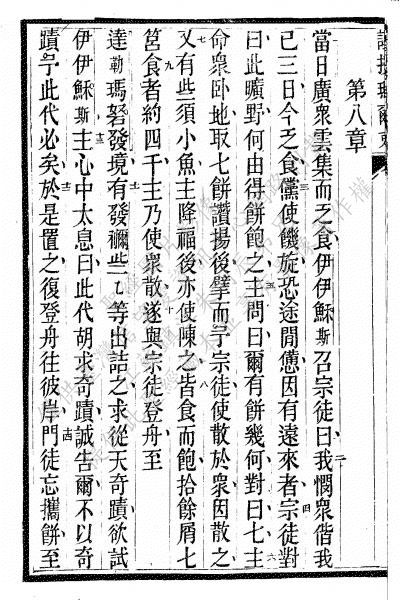 第八章
當日廣衆雲集而乏食伊伊穌斯召宗徒曰我憫衆偕我
已三日今乏食儻使饑旋恐途間憊因有遠來者宗徒對
曰此曠野何由得餅飽之主問曰爾有餅幾何對曰七主
命衆卧地取七餅讚揚後擘而予宗徒使散於衆因散之
又有些須小魚主降福後亦使陳之皆食而飽拾餘屑七
筥食者約四千主乃使衆散遂與宗徒登舟至
達勒瑪努發境有發禰些乚等出詰之求從天奇蹟欲試
伊伊穌斯主心中太息曰此代胡求奇蹟誠告爾不以奇
蹟予此代必矣於是置之復登舟往彼岸門徒忘攜餅至